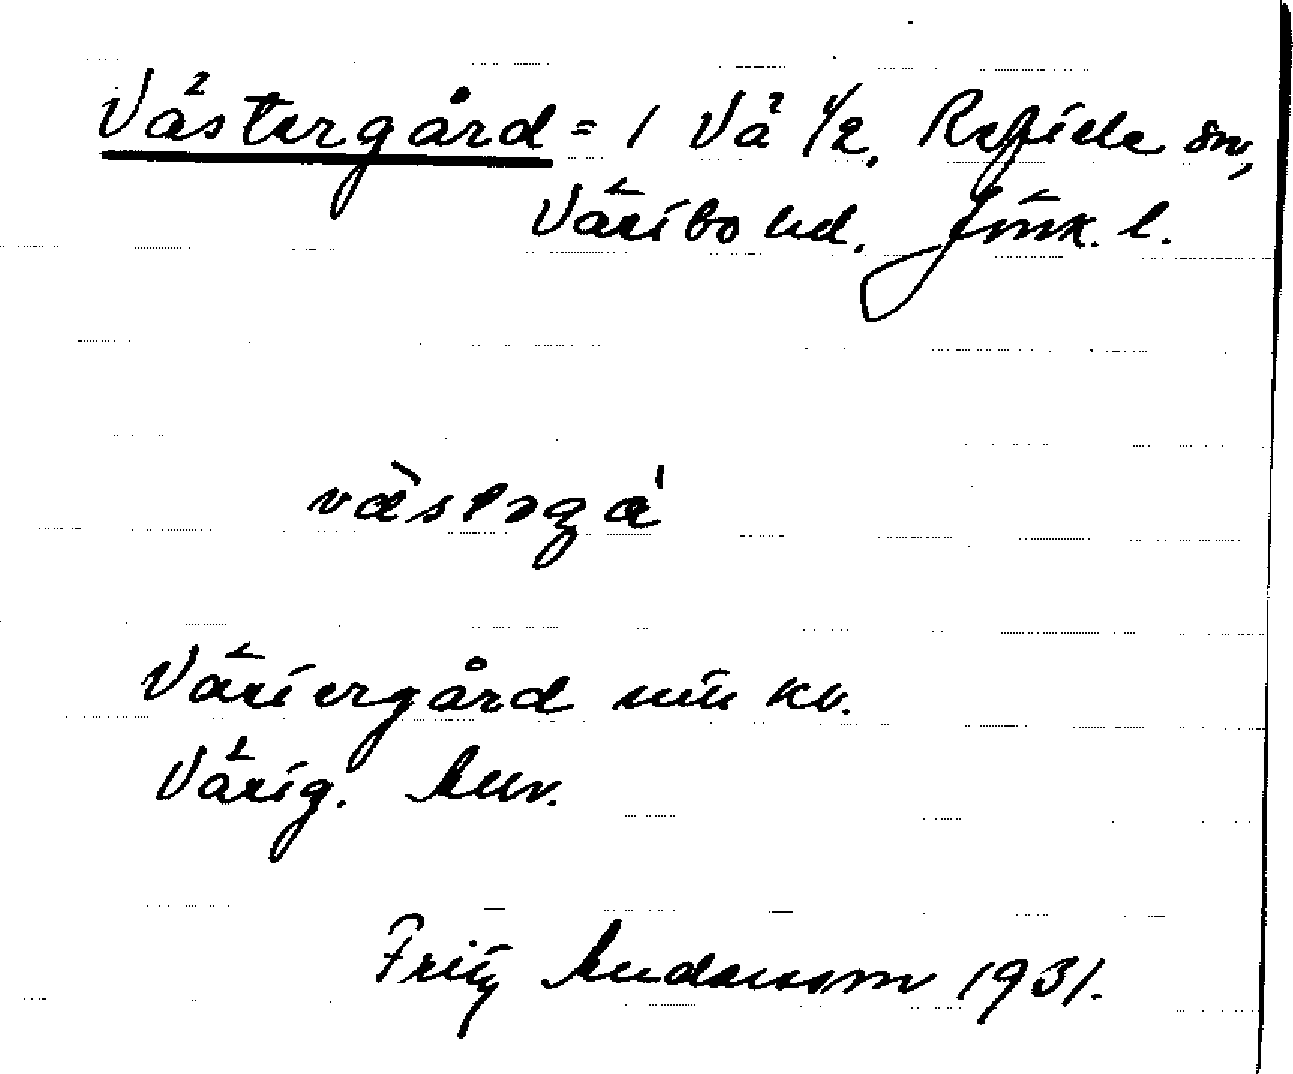 Västergård = 1 Vä 1/2, Reftele sn,
Västbo hd. Jönk. l.
västəgá
Västergård min kv.
Västg. Autv.
Fritz Andersson 1931.